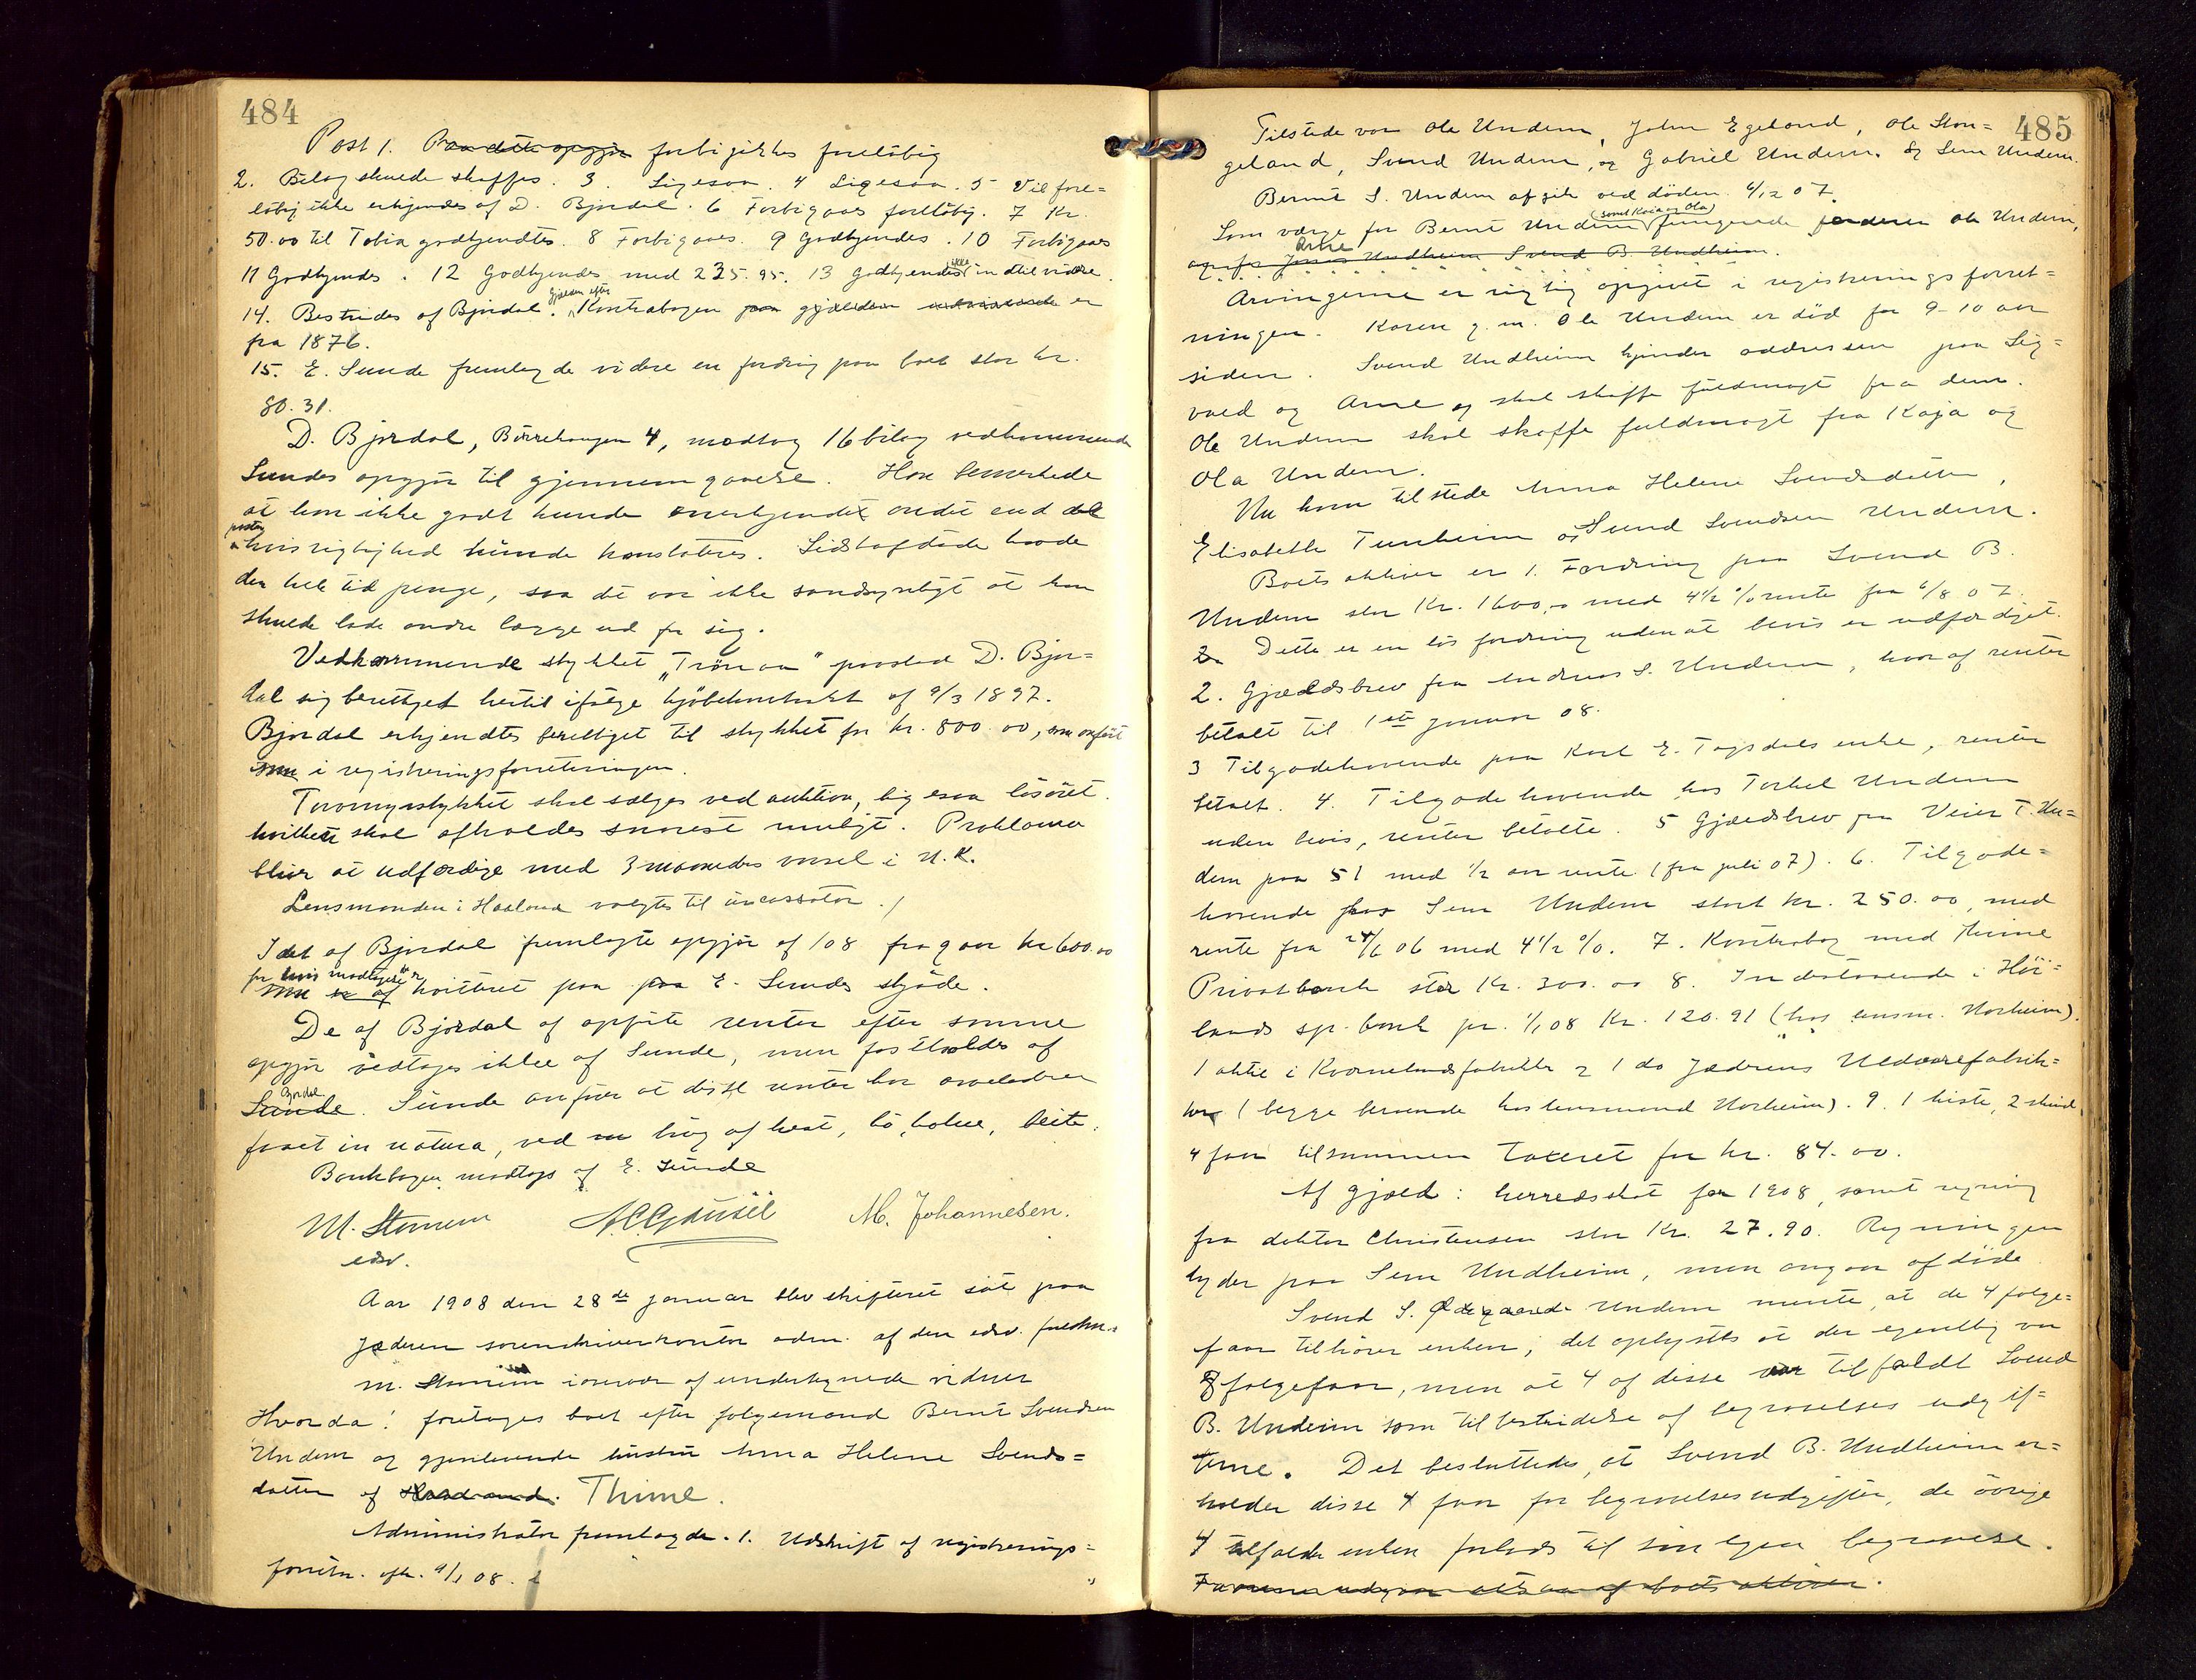 484
Post 1. Paa dette opgjør forbigikkes foreløbig
2. Bilag skulde skaffes. 3. Ligesaa. 4 Ligesaa. 5 Vil fore=
løbig ikke erkjendes af D. Bjordal. 6 Forbigaaes foreløbig. 7 Kr.
50.00 til Tobia godkjendtes. 8 Forbigaaes. 9 Godkjendes. 10 Forbigaaes
11 Godkjendes. 12 Godkjendes med 235.95. 13 Godkjendes ikke indtil videre.
14. Bestrides af Bjordal. Gjælden efter Kontrabogen paa gjælden er
fra 1876.
15. E. Sunde fremlagde videre en fordring paa boet stor kr.
80.31.
D. Bjordal, Børrehaugen 4, modtog 16 bilag vedkommende
Sundes opgjør til gjennemgaaelse. Han bemerkede
at han ikke godt kunde anerkjendt andet end de
poster hvis rigtighed kunde konstateres. Sidstafdøde havde
den hele tid penge, saa det var ikke sandsynligt at han
skulde lade andre lægge ud for sig.
Vedkommende stykket "Trønaa" paastod D. Bjor=
dal sig berettiget hertil ifølge kjøbekontrakt af 9/3 1897.
Bjordal erkjendtes berettiget til stykket for kr. 800.00, som anført
i registreringsforretningen.
Torvmyrstykket skal sælges ved auktion, ligesaa løsøret.
hvilken skal afholdes snarest muligt. Proklama
bliver at udfærdige med 3 maaneders varsel i N. K.
Lensmanden i Haaland valgtes til incassator.
I det af Bjordal fremlagte opgjør af 108 fragaar kr 600.00
for hvis modtagelse er kvitteret paa E. Sundes skjøde.
De af Bjordal opførte renter efter samme
opgjør vedtages ikke af Sunde, men fastholdes af
Sunde Bjordal. Sunde anfører at disse renter har arveladeren
faaet in natura, ved brug af hest, hø, halm, beite.
Bankbogen modtags af E. Sunde
M. Stornem A. C. Gausel M. Johannesen.
edsv.
Aar 1908 den 28de januar blev skifteret sat paa
Jæderen sorenskriverkontor adm. af den edsv. fuldm.
M. Stornem i overvær af undertegnede vidner
Hvorda: foretoges boet efter folgemand Bernt Svendsen
Undem og gjenlevende hustru Anna Helene Svends=
datter af Thime.
Administrator fremlagde. 1. Udskrift af registrerings=
forretn. afh. 9/1 08.
485
Tilstede var Ole Undem, John Egeland, Ole Stan=
geland, Svend Undem, og Gabriel Undem. og Sem Undem.
Bernt S. Undem afgik ved døden 6/12 07.
Som værge for Bernt Undem (samt Kaia og Ola) fungerede faderen Ole Undem,
og for Jonas Arne Undheim Svend B. Undheim.
Arvingerne er rigtig opgivet i registreringsforret=
ningen. Karen g. m. Ole Undem er død for 9-10 aar
siden. Svend Undheim kjender addressen paa Sig=
vald og Arne og skal skaffe fuldmagt fra dem.
Ole Undem skal skaffe fuldmagt fra Kaja og
Ola Undem.
Nu kom tilstede Anna Helene Svendsdatter,
Elisabeth Tunheim og Svend Svendsen Undem.
Boets aktiver er 1. Fordring paa Svend B.
Undem stor Kr. 1600,00 med 4½ % rente fra 6/8 07.
Dette er en løs fordring uden at bevis er udfærdiget.
2. Gjældsbrev fra Andreas S. Undem, hvoraf renter
betalt til 1ste januar 08.
3 Tilgodehavende paa Karl E. Togsdals enke, renter
betalt. 4. Tilgodehavende hos Torkel Undem
uden bevis, renter betalte. 5 Gjældsbrev fra Veier T. Un=
dem paa 51 med ½ aar rente (fra juli 07). 6. Tilgode=
havende hos Sem Undem stort kr. 250.00, med
rente fra 24/6 06 med 4½ %. 7. Kontrabog med Thime
Privatbank stor Kr. 300.00 8. Indestaaende i Høi=
lands sp. bank pr. 1/1 08 Kr. 120.91 (hos lensm. Norheim).
1 aktie i Kvernelandsfabrikk og 1 do Jæderens Uldvarefabrik=
ker (begge beroende hos lensmand Norheim). 9. 1 kiste, 2 skind
4 faar tilsammen taxeret for kr. 84.00.
Af gjæld: herredsskat for 1908, samt regning
fra doktor Christensen stor Kr. 27.90. Regningen
lyder paa Sem Undheim, men angaar afdøde
Svend S. Ødegaard Undem mente, at de 4 folge=
faar tilhører enken; det oplystes at der egentlig var
8 folgefaar, men at 4 af disse var tilfaldt Svend
B. Undeim som til bestridelse af begravelses udgif=
terne. Det besluttedes, at Svend B. Undheim er=
holder disse 4 faar for begravelsesudgifter, de øvrige
4 tilfalder enken forlods til sin egen begravelse.
Faarene udgaar altsaa af boets aktiver.